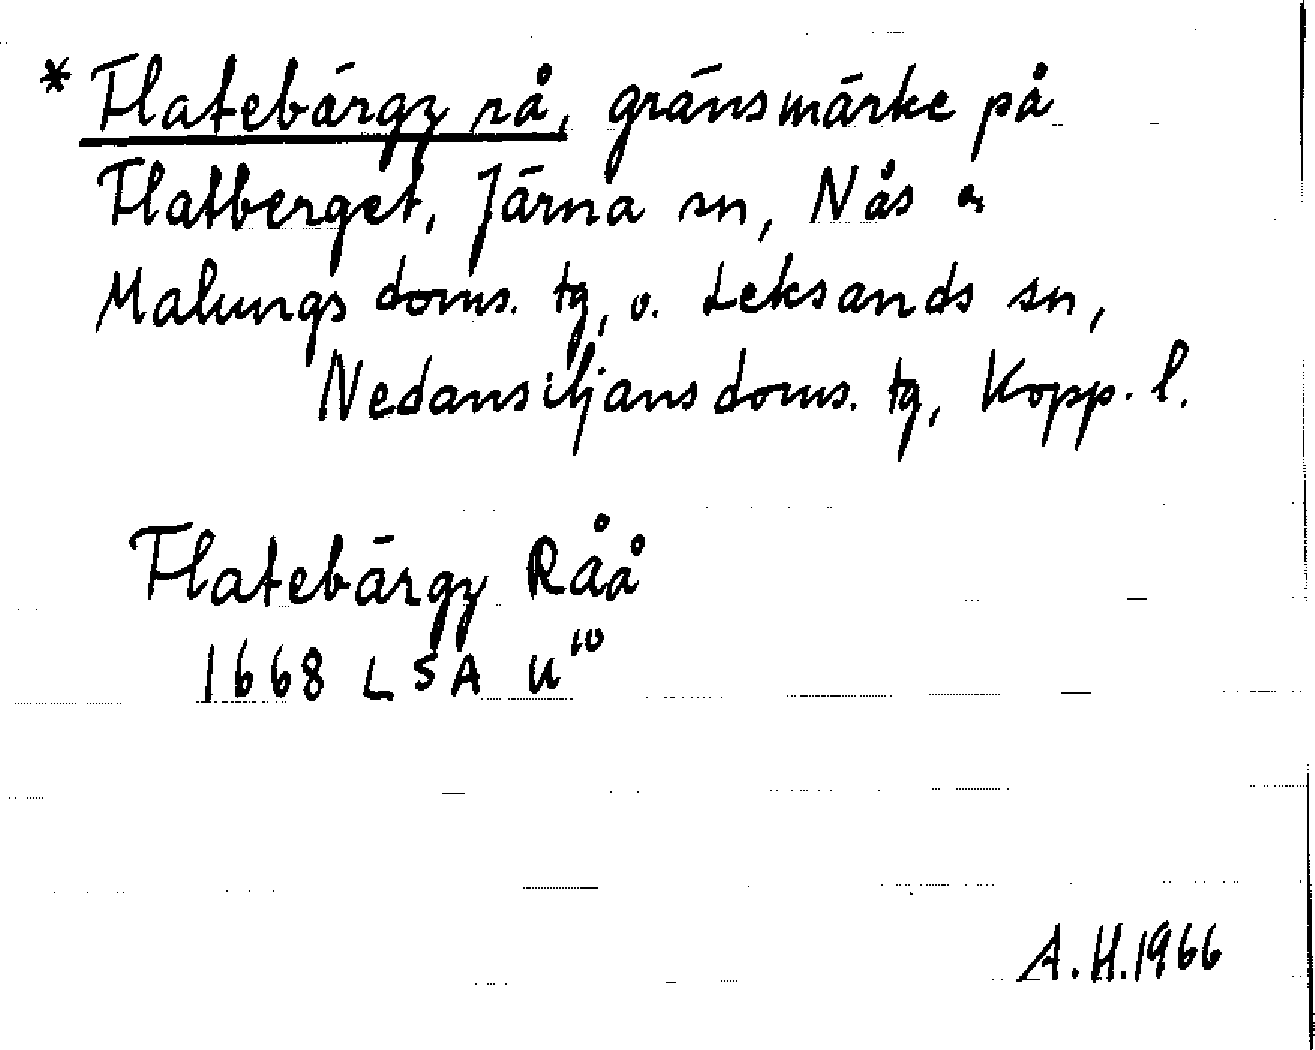 * Flatebärgz rå, gränsmärke på
Flatberget, Järna sn, Nås o
Malungs doms. tg, o. Leksands sn,
Nedansiljans doms. tg, Kopp. l.
Flatebärgz Råå
1668 LSA U¹⁰
A.H. 1966